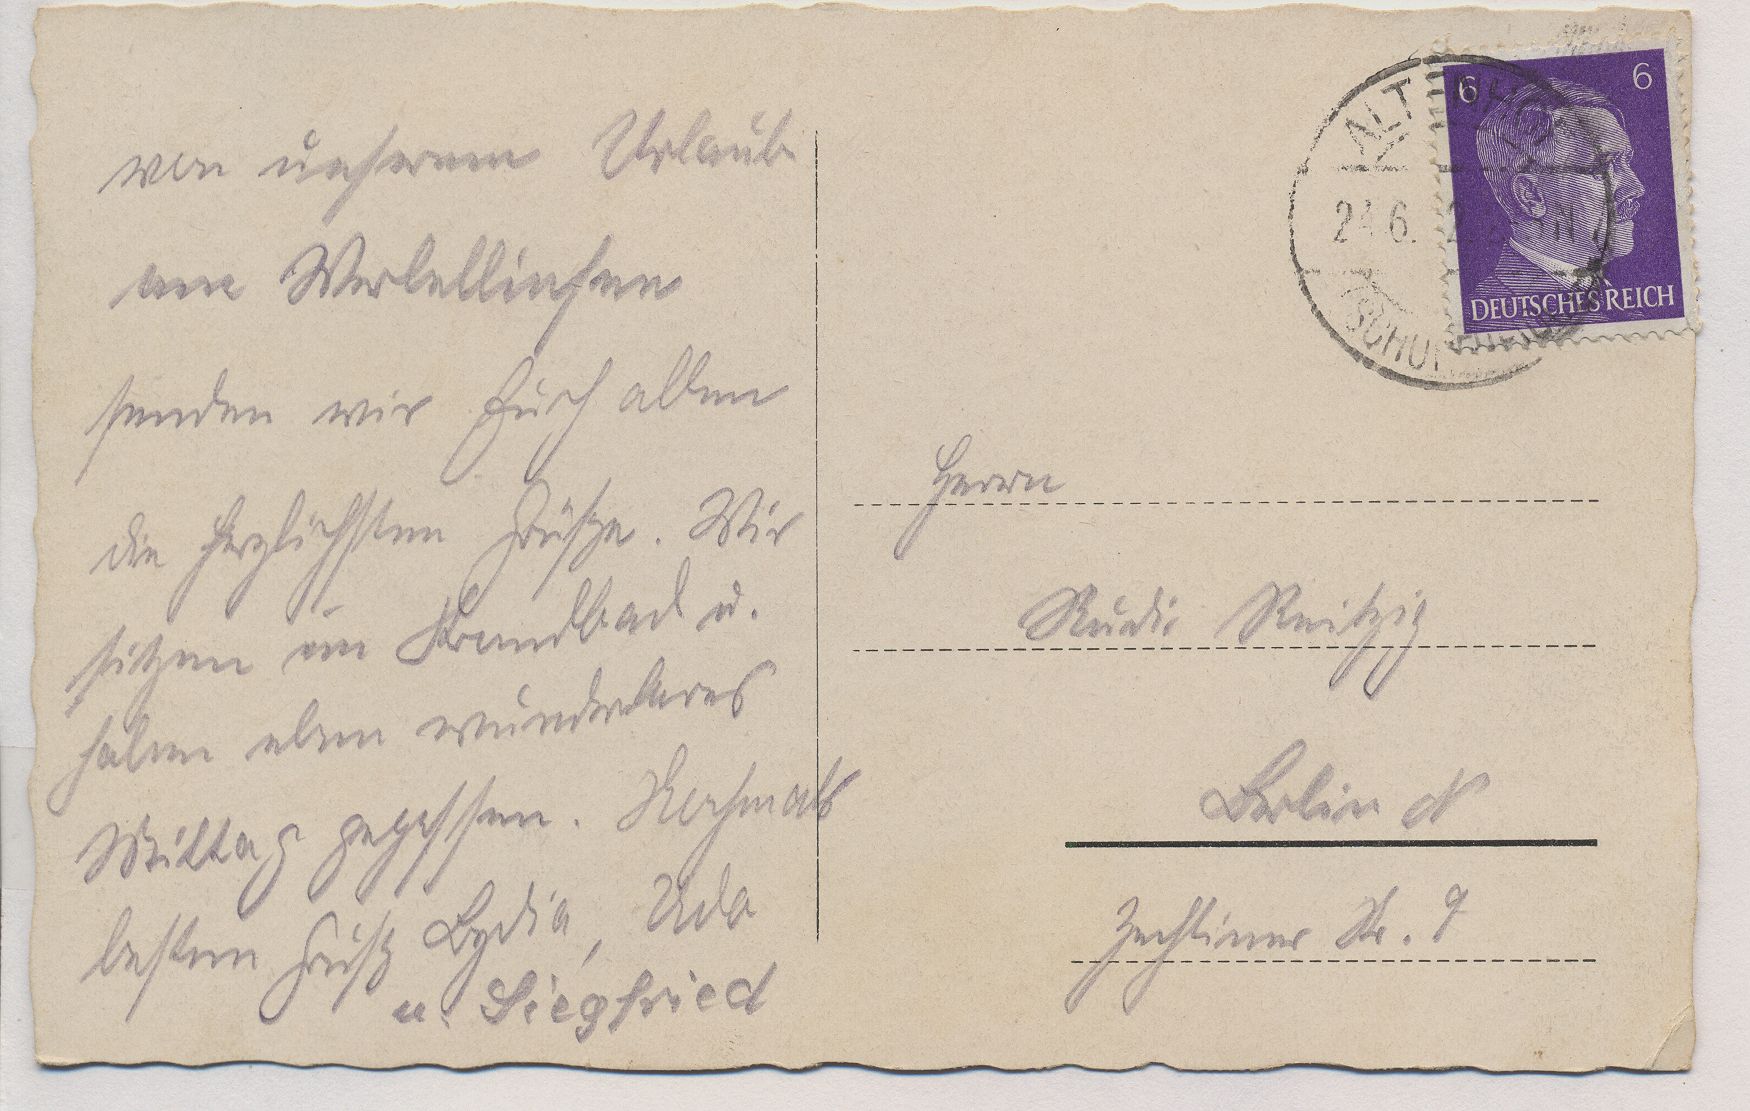 von unserem Urlaub
am Werbellinsee
senden wir Euch allen
die herzlichsten Grüße. Wir
sitzen im Strandbad u.
haben eben wunderbares
Mittag gegessen. Nochmals
besten Gruß Lydia, Udo
u. Siegfried
6 6
DEUTSCHES REICH
24.6.
Herrn
Rudi Reitzig
Berlin N
Zechliner Str. 9